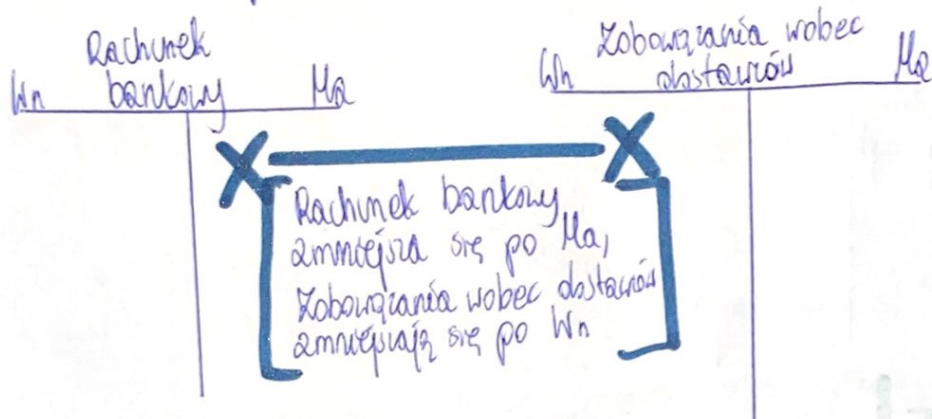 Rachunek
Wn bankowy Ma
Zobowiązania wobec
Wn dostawców Ma
X X
Rachunek bankowy
zmniejsza się po Ma,
Zobowiązania wobec dostawców
zmniejszają się po Wn